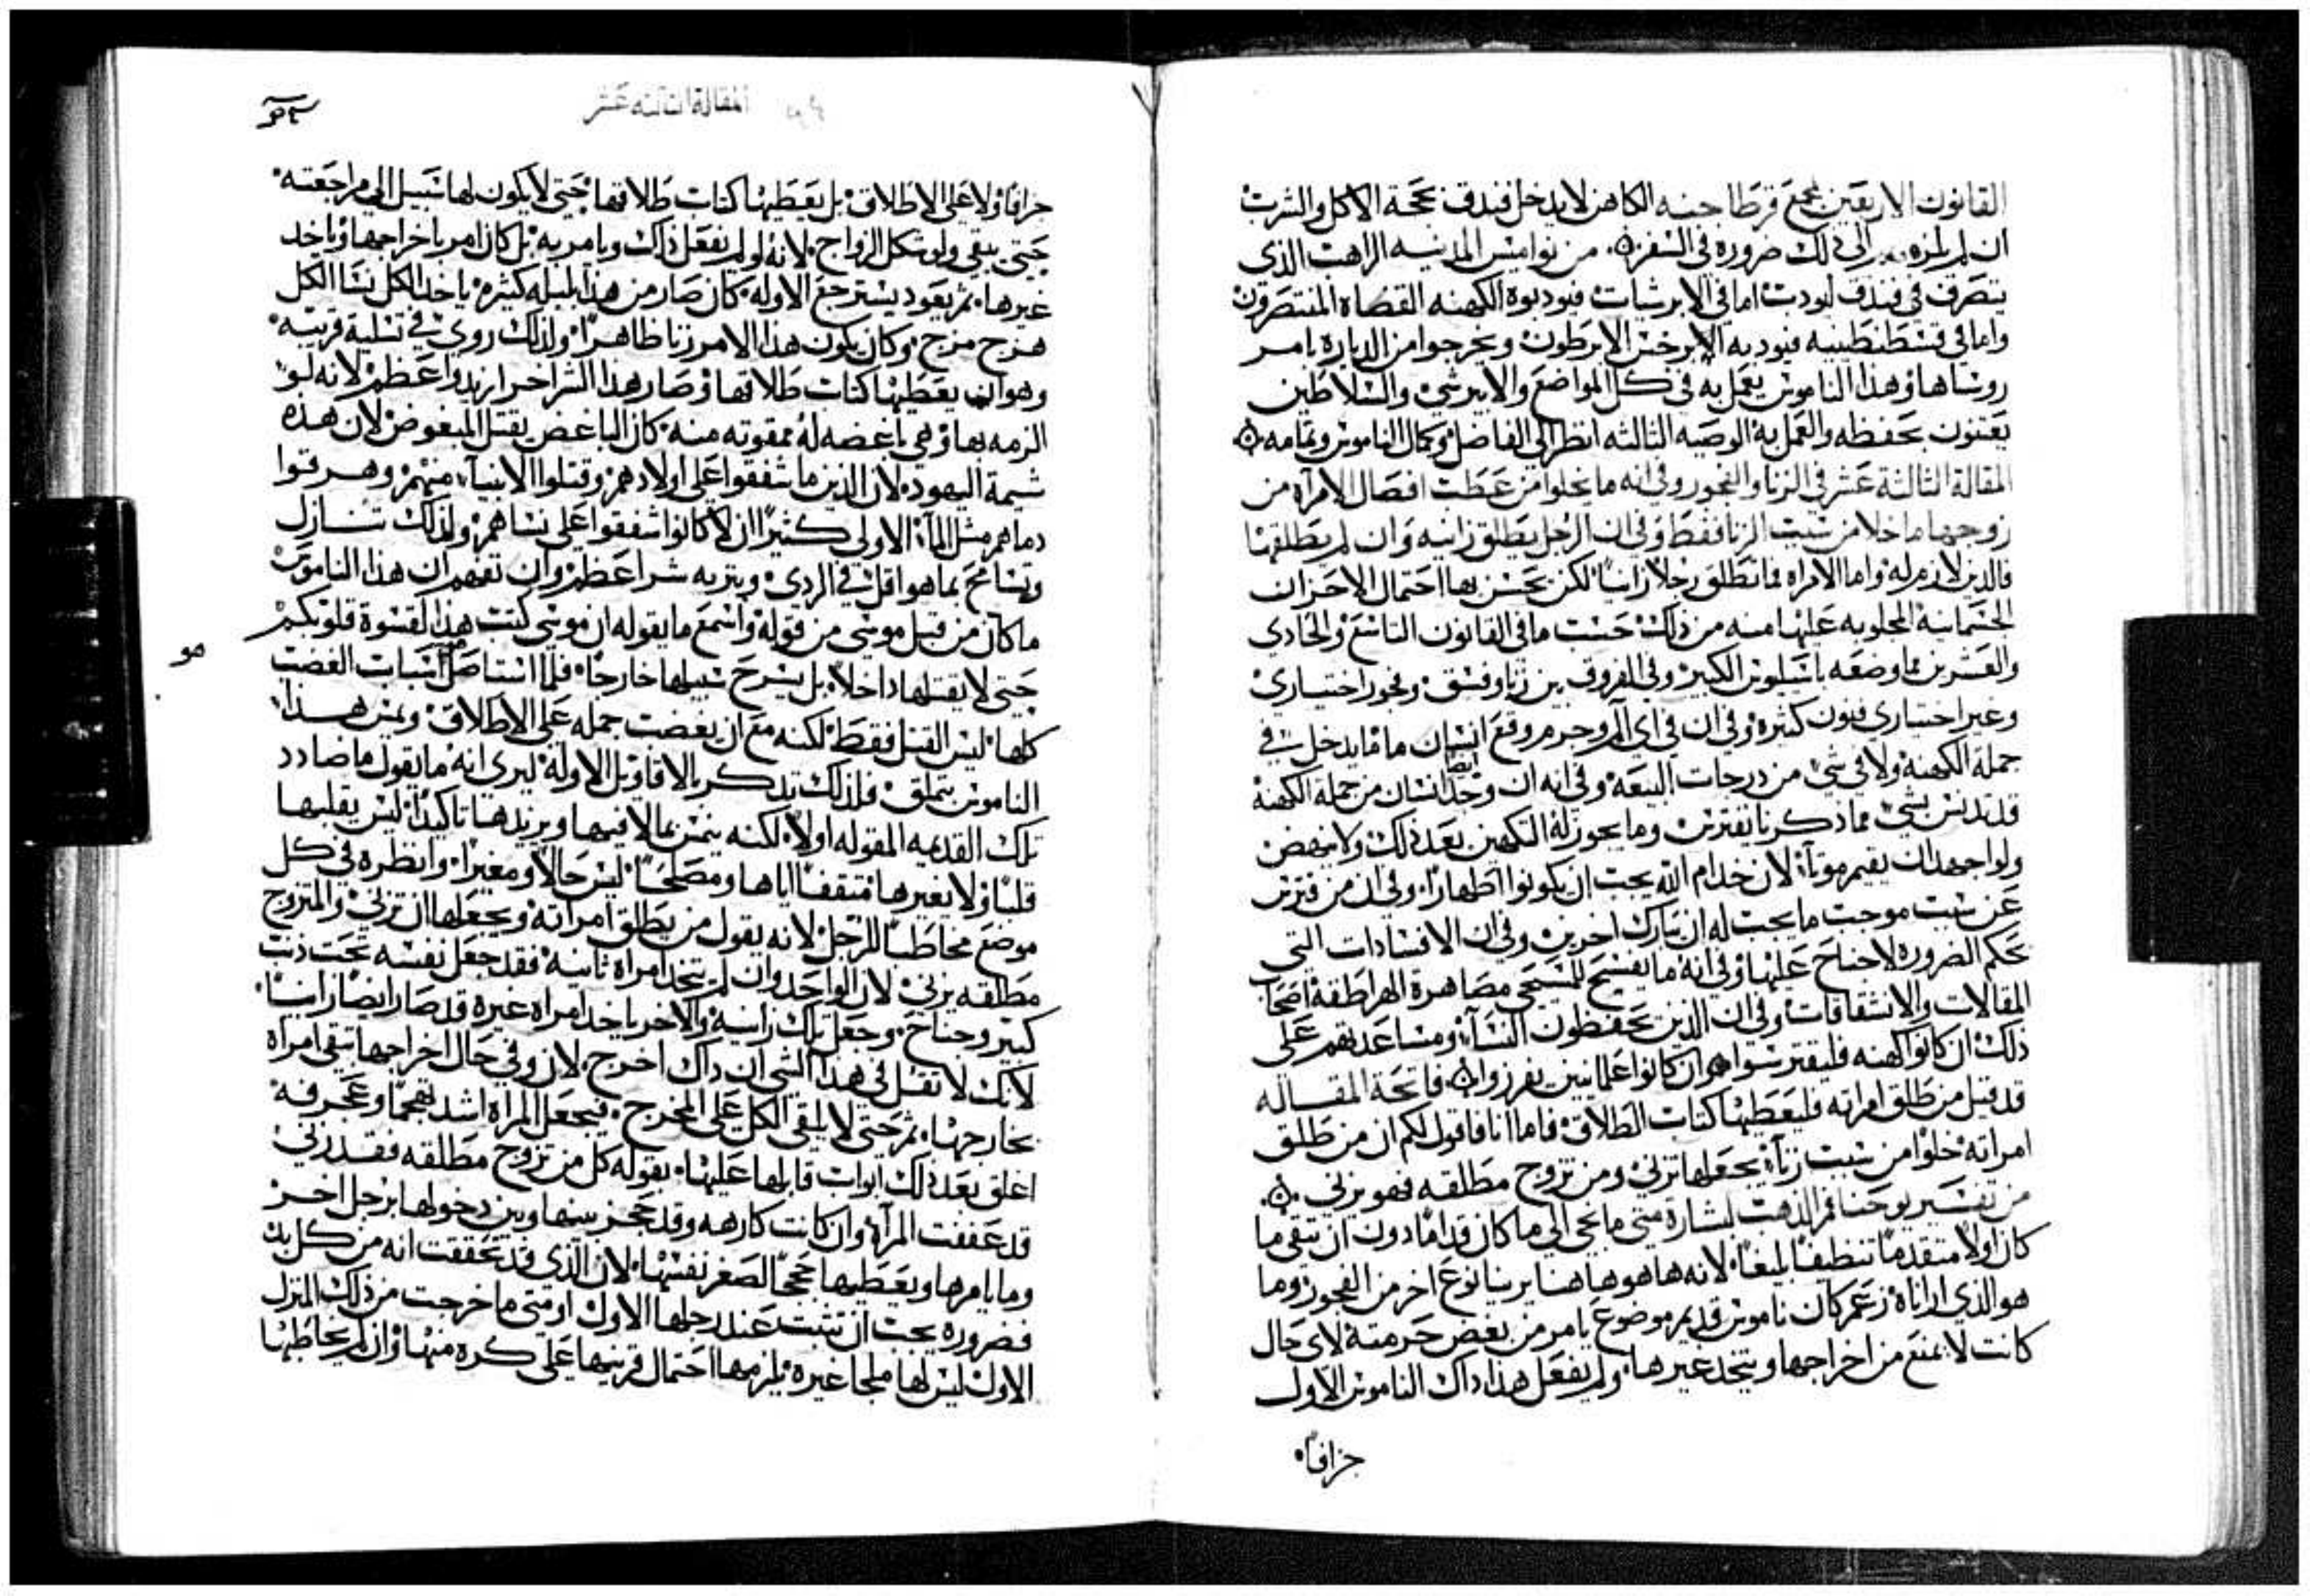 القانون الاربعين لمجمع قرطاجنه الكاهن لا يدخل فندق بحجة الاكل والشرب
ان لم الى ذلك ضروره في السفر من نواميس المدنيه الراهب الذي
يتصرف في فندق ليودب اما في الابرشيات فيودبوه الكهنه القضاه المنتصرون
واما في قسطنطينيه فيودبه الابرخس الابرطون ويخرجوا من الدياره بامر
روساها وهذا الناموس يعمل به في كل المواضع والسلاطين
يعتنون بحفظه والعمل به الوصيه الثالثه انظر الى الفاضل وكمال الناموس وتمامه
المقالة الثالثة عشر في الزنا والفجور وفي انه ما يخلوا من عطب افصال الامراه من
زوجها ما خلا من سبب الزنا فقط وفي ان الرجل يطلق زانيه وان لم يطلقها
فالدين لازم له واما الامراه فما تطلق رجلا زانيا لكن يحسن بها احتمال الاحزان
الجسمانيه المجلوبه عليها منه من ذلك حسب ما في القانون التاسع والحادي
والعشرين مما وضعه باسيليوس الكبير وفي الفروق بين زنا وفسق وفجور اختياري
وغير اختياري فنون كثيره وفي ان في اي الم وجرم وقع انسان ما ما يدخل في
جملة الكهنة ولا في شي من درجات البيعه وفي انه ان وجد ايضا انسان من جملة الكهنة
قد تدنس بشي مما ذكرنا يفترس وما يجوز له التكهين بعد ذلك ولا ينهض
ولو اجهد ان يقيم موتا لان خدام الله يجب ان يكونوا اطهارا وفي ان من فترس
عن سبب موجب ما يجب له ان يبارك اخرين وفي ان الافسادات التي
بحكم الضروره لا جناح عليها وفي انه ما يفسح للمسيحي مصاهرة الهراطقة اصحاب
المقالات والانشقاقات وفي ان الذين يخطفون النسا ومساعديهم على
ذلك ان كانوا كهنه فليفترسوا وان كانوا علمانيين يفرزوا فاتحة المقاله
قد قيل من طلق امراته فليعطيها كتاب الطلاق فاما انا فاقول لكم ان من طلق
امراته خلوا من سبب زنا يجعلها تزني ومن تزوج مطلقه فهو يزني
من تفسير يوحنا فم الذهب لبشارة متى ما يجي الى ما كان قداما دون ان تنقي ما
كان اولا متقدما تنظيفا بليغا لانه ها هو هاهنا يرينا نوع اخر من الفجور وما
هو الذي ارانا زعم كان ناموس قديم موضوع يامر من يغض حرمته لاي حال
كانت لا يمنع من اخراجها ويتخذ غيرها ولم يفعل هذا ذاك الناموس الاول
جزافا
المقالة الثالثة عشر
جزافا ولا على الاطلاق بل يعطيها كتاب طلاقها حتى لا يكون لها سبيل الى مراجعته
حتى يبقى ولو شكل الزواج لانه لو لم يفعل ذاك ويامر به بل كان امر باخراجها وياخد
غيرها ثم يعود يسترجع الاوله كان صار من هذا بلبله كثيره ياخذ الكل نسا الكل
هرج مرج وكان يكون هذا الامر زنا ظاهرا ولذلك روي في تسلية قريبه
وهو ان يعطيها كتاب طلاقها وصار هذا الشر اخر ازيد واعظم لانه لو
الزمه بها وهي باغضه له ممقوته منه كان الباغض يقتل المبغوض لان هذه
شيمة اليهود لان الذين ما شفقوا على اولادهم وقتلوا الانبياء منهم وهرقوا
دماهم مثل الماء الاولى كثيرا ان لا كانوا شفقوا على نساهم ولذلك تنازل
وتسامح بما هو اقل في الردي وبتر به شرا عظم وان تفهم ان هذا الناموس
ما كان من قبل موسى من قوله واسمع ما يقوله ان موسى كتب هذا لقسوة قلوبكم
حتى لا يقتلها داخلا بل يشرح سبيلها خارجا فلما استاصل اسباب الغضب
كلها ليس القتل فقط لكنه مع ان يغضب جمله على الاطلاق ويمس هذا
الناموس بتملق فلذلك تذكر بالاقاويل الاوله ليري انه ما يقول ما ضادد
تلك القديمه المقوله اولا لكنه ينمس بما لا فيها ويزيدها تاكيدا ليس يقلبها
قلبا ولا يغيرها مثقفا اياها ومصلحا ليس حالا ومغيرا وانظره في كل
موضع مخاطبا للرجل لانه يقول من يطلق امراته ويجعلها ان تزني والمتزوج
مطلقه يزني لان الواحد وان لم يتخذ امراه ثانيه فقد جعل نفسه تحت ذنب
كبير وجناح وجعل تلك زانيه والاخر ياخذ امراه غيره قد صار ايضا زانيا
لانك لا تقل في هذا الشي ان ذاك اخرج لان وفي حال اخراجها تبقى امراه
مخارجها ثم حتى لا يلقي الكل على المخرج فيجعل المراه اشد تقحما وعجرفه
اغلق بعد ذلك ابواب قابلها عليها بقوله كل من تزوج مطلقه فقد زنى
قد عففت المرآه وان كانت كارهه وقد حجز بينها وبين دخولها برجل اخر
وما يامرها ويعطيها حججا لصغر نفسها لان الذي قد تحققت انه من كل بد
فضروره يجب ان تثبت عند رجلها الاول او متى ما خرجت من ذلك المنزل
الاول ليس لها ملجا غيره يلزمها احتمال قرينها على كره منها وان لم يخاطبها
هو